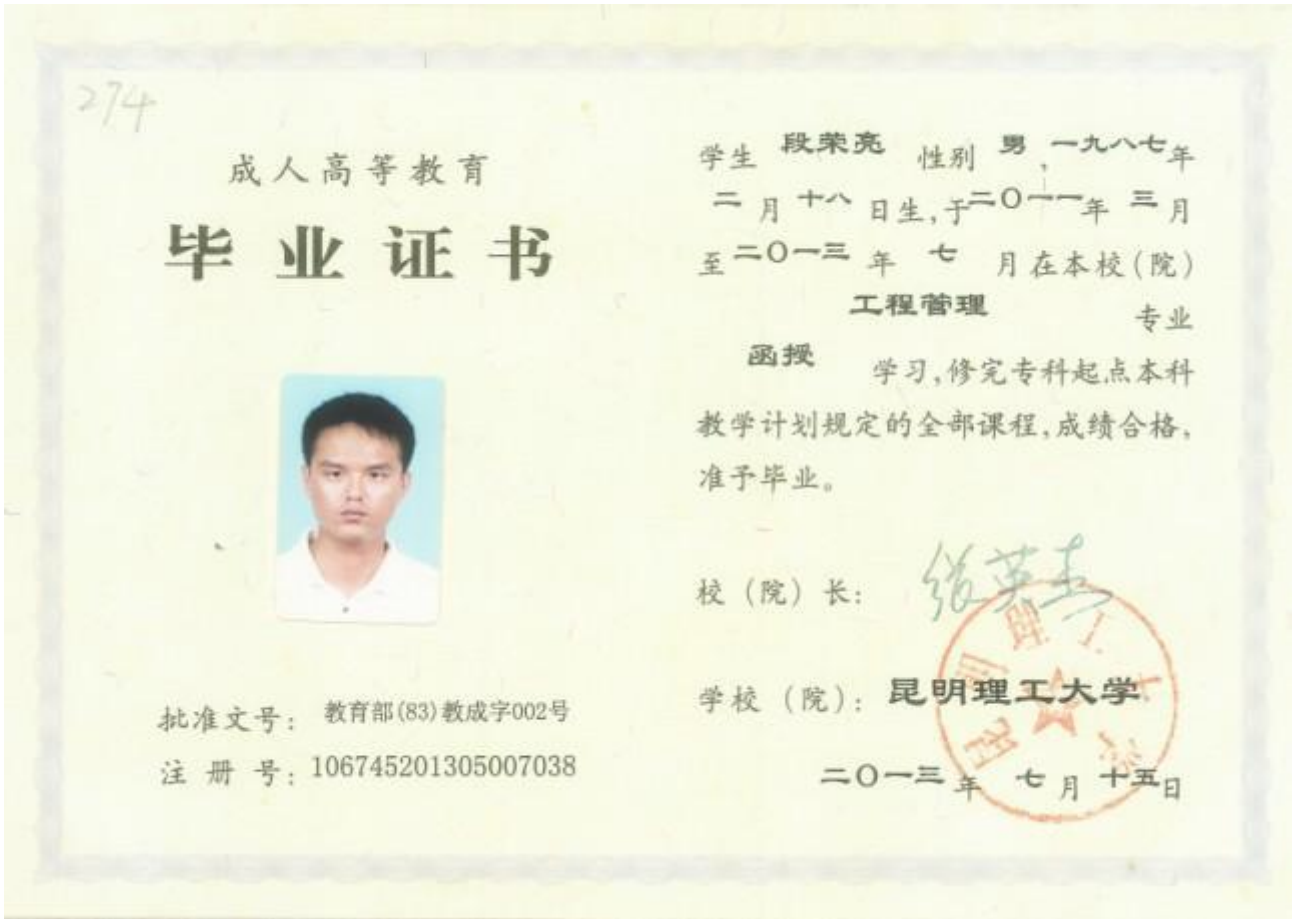 274
成人高等教育
毕业证书
批准文号: 教育部(83)教成字002号
注册号: 106745201305007038
学生 段荣亮 性别 男, 一九八七年
二月十八日生, 于二〇一一年三月
至二〇一三年七月在本校(院)
工程管理 专业
函授 学习, 修完专科起点本科
教学计划规定的全部课程, 成绩合格,
准予毕业。
校(院)长: 张英杰
学校(院): 昆明理工大学
昆明理工大学
二〇一三年七月十五日